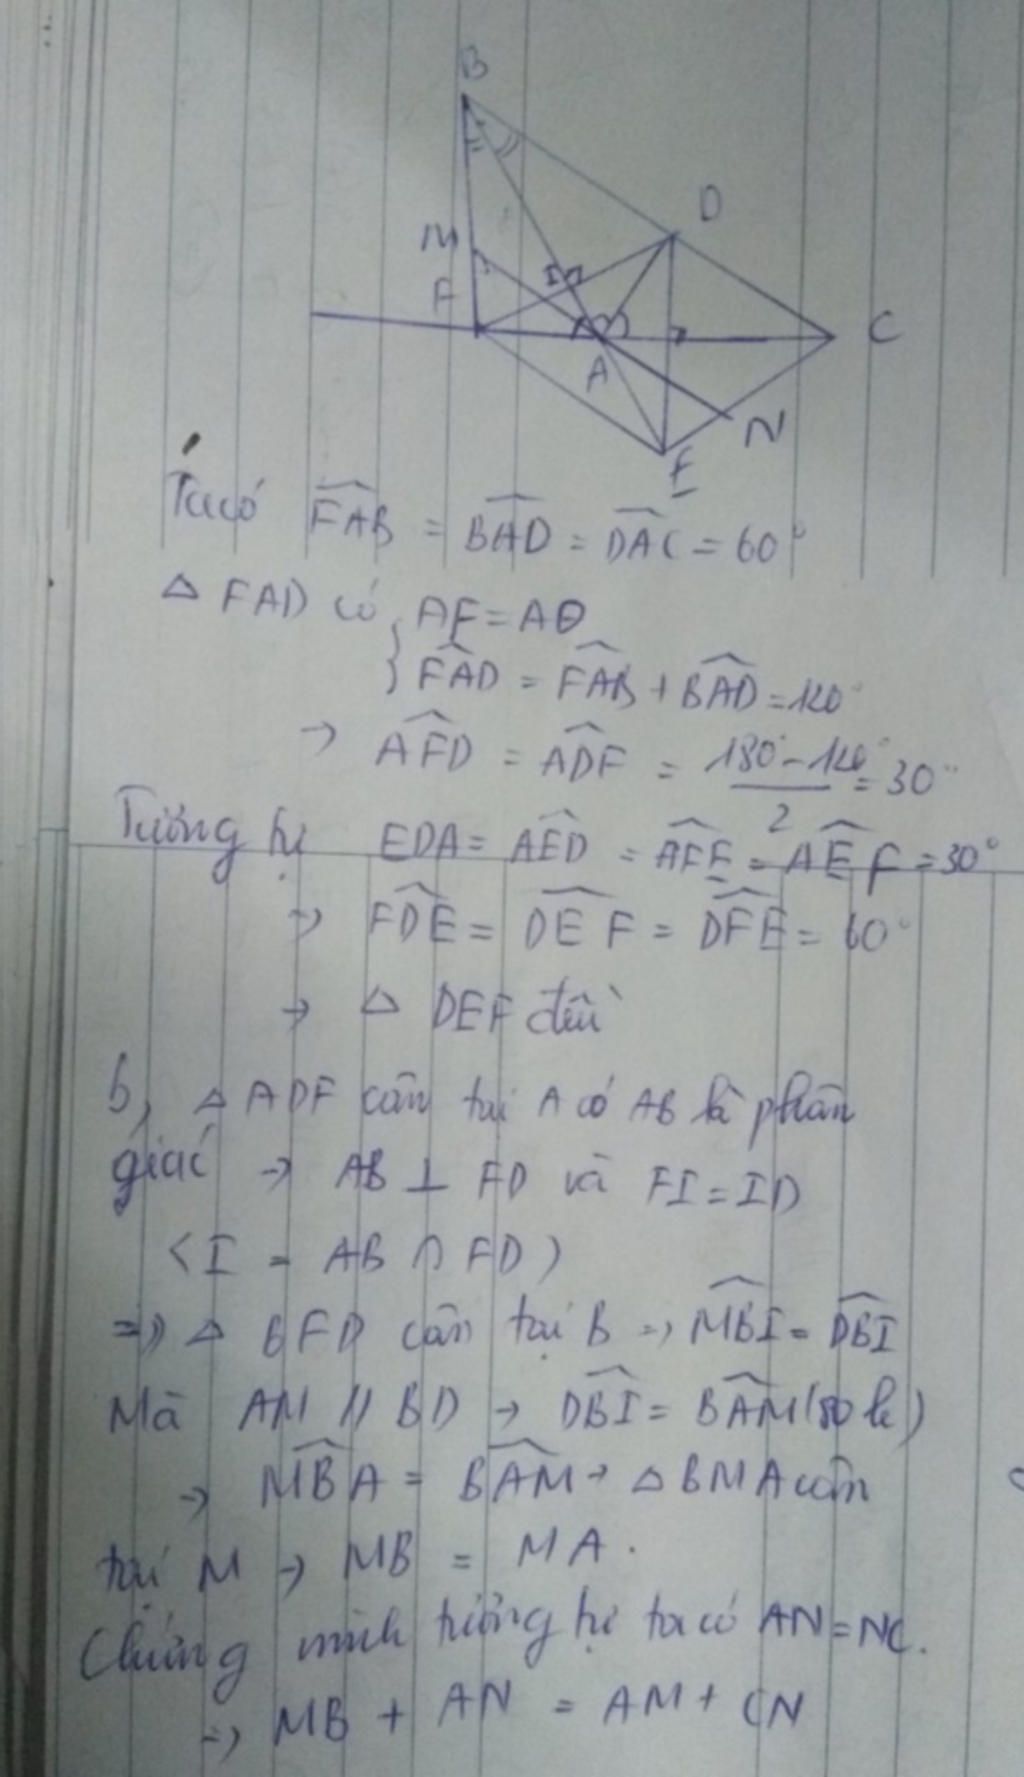 B
D
M
I
F
C
A
N
E
Ta có FAB = BAD = DAC = 60°
△ FAD có { AF = AD
FAD = FAB + BAD = 120°
→ AFD = ADF = 180° - 120° / 2 = 30°
Tương tự EDA = AED = AFE = AEF = 30°
→ FDE = DEF = DFE = 60°
→ △ DEF đều
b, △ ADF cân tại A có AB là phân
giác → AB ⊥ FD và FI = ID
(I = AB ∩ FD)
=> △ BFD cân tại B → MBI = DBI
Mà AM // BD → DBI = BAM (so le)
→ MBA = BAM → △ BMA cân
tại M → MB = MA.
Chứng minh tương tự ta có AN = NC.
=> MB + AN = AM + CN